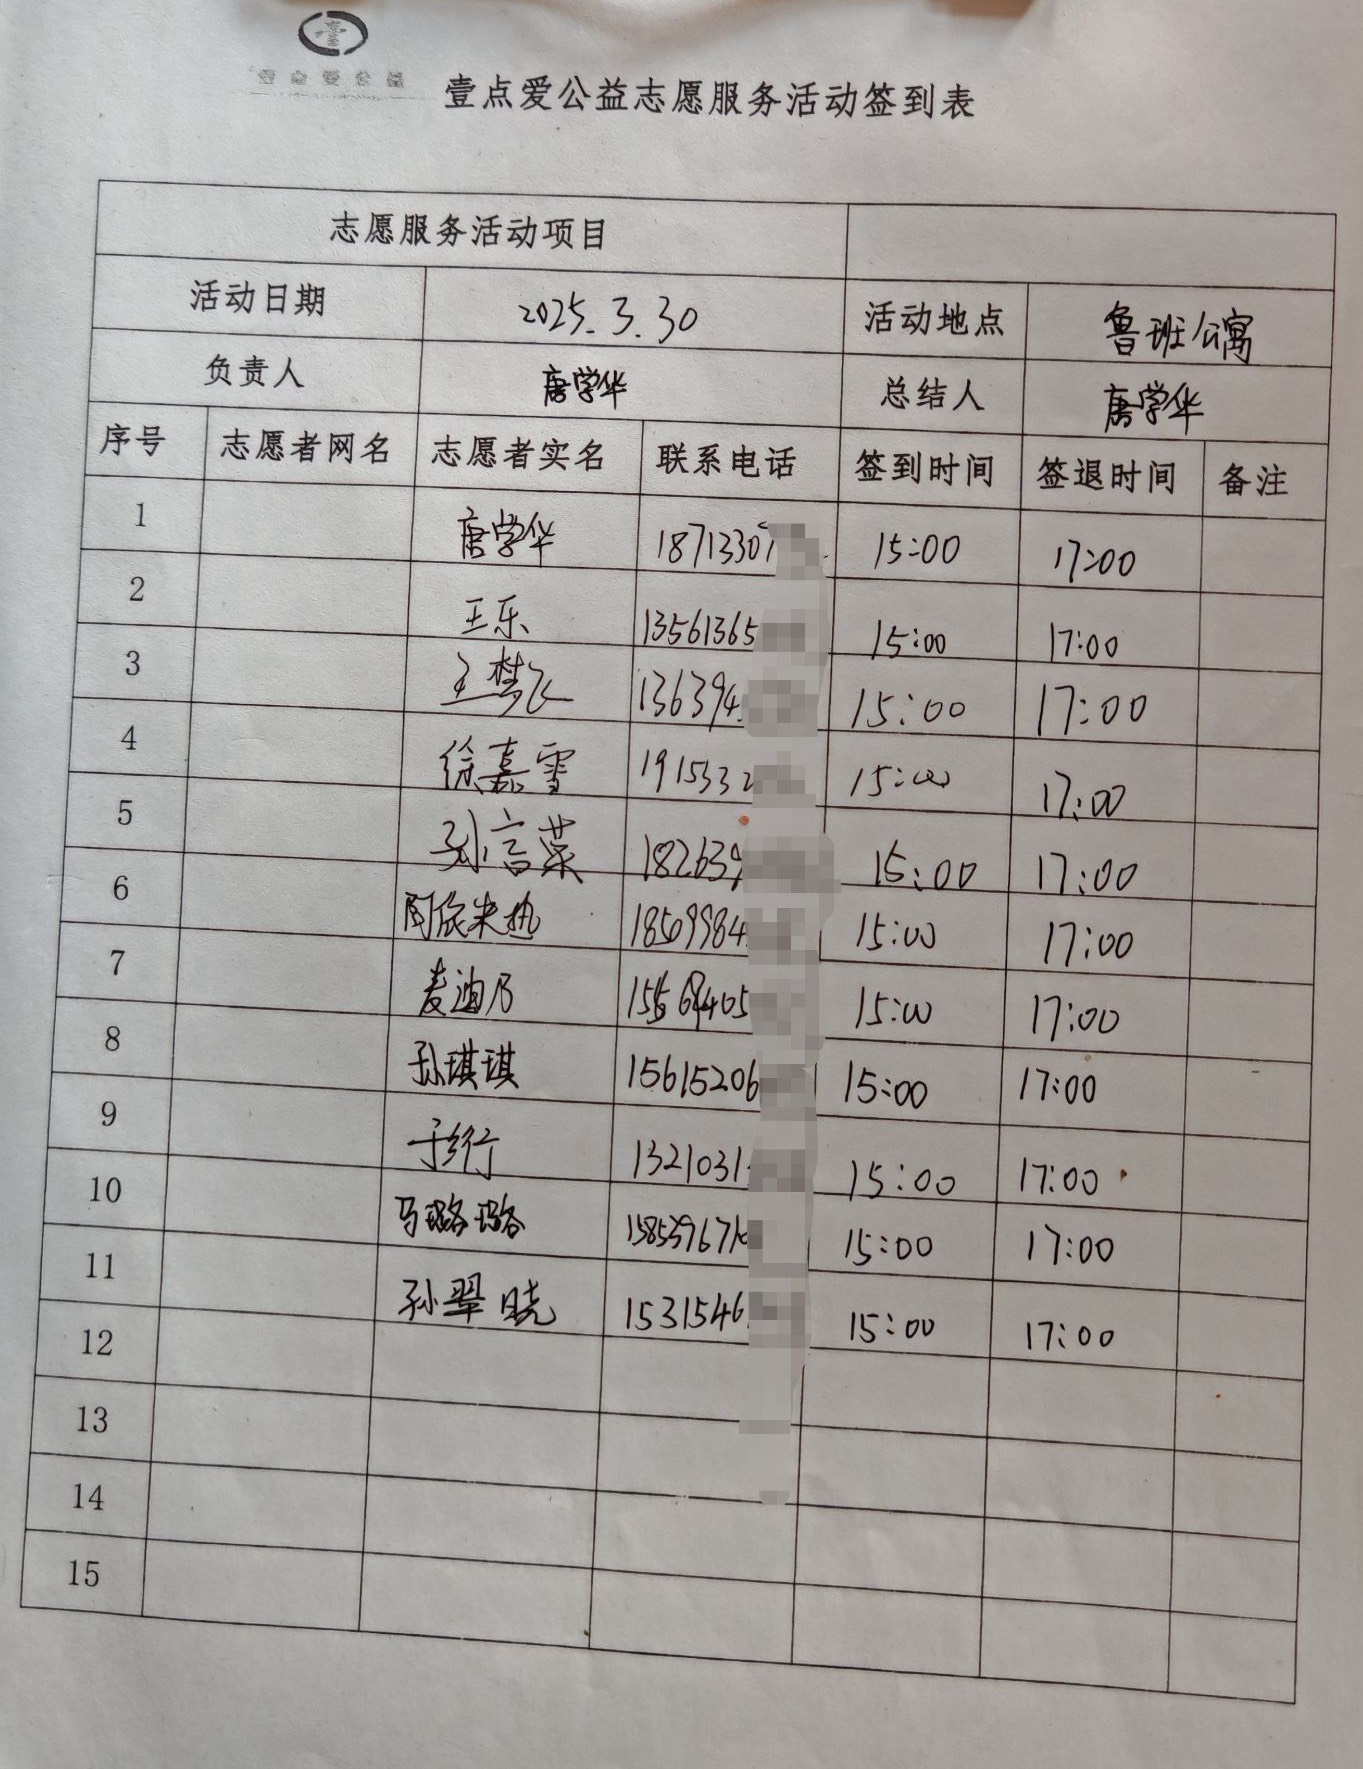 壹点爱公益
壹点爱公益志愿服务活动签到表
志愿服务活动项目
活动日期 2025.3.30 活动地点 鲁班公寓
负责人 唐学华 总结人 唐学华
序号 志愿者网名 志愿者实名 联系电话 签到时间 签退时间 备注
1 唐学华 1871330 15:00 17:00
2 王乐 13561365 15:00 17:00
3 王梦飞 136394 15:00 17:00
4 徐嘉雪 191533 15:00 17:00
5 孙言荣 182639 15:00 17:00
6 阿依米热 18509984 15:00 17:00
7 麦迪乃 15:00 17:00
8 孙琪琪 15615206 15:00 17:00
9 于行 1321031 15:00 17:00
10 马璐璐 158539671 15:00 17:00
11 孙翠晓 1531546 15:00 17:00
12
13
14
15